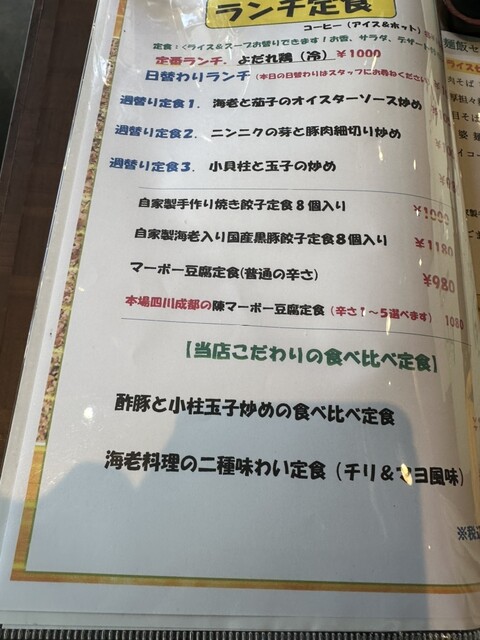 ランチ定食
コーヒー（アイス＆ホット）
定食：＜ライス＆スープお替りできます！お香、サラダ、デザート
定番ランチ．よだれ鶏（冷）￥1000
日替わりランチ（本日の日替わりはスタッフにお尋ねください
週替り定食1．海老と茄子のオイスターソース炒め
週替り定食2．ニンニクの芽と豚肉細切り炒め
週替り定食3．小貝柱と玉子の炒め
自家製手作り焼き餃子定食８個入り ￥1000
自家製海老入り国産黒豚餃子定食８個入り ￥1180
マーボー豆腐定食(普通の辛さ) ￥980
本場四川成都の陳マーボー豆腐定食（辛さ１～５選べます） 1080
【当店こだわりの食べ比べ定食】
酢豚と小柱玉子炒めの食べ比べ定食
海老料理の二種味わい定食（チリ＆マヨ風味）
麺飯セ
ライスセ
肉そば